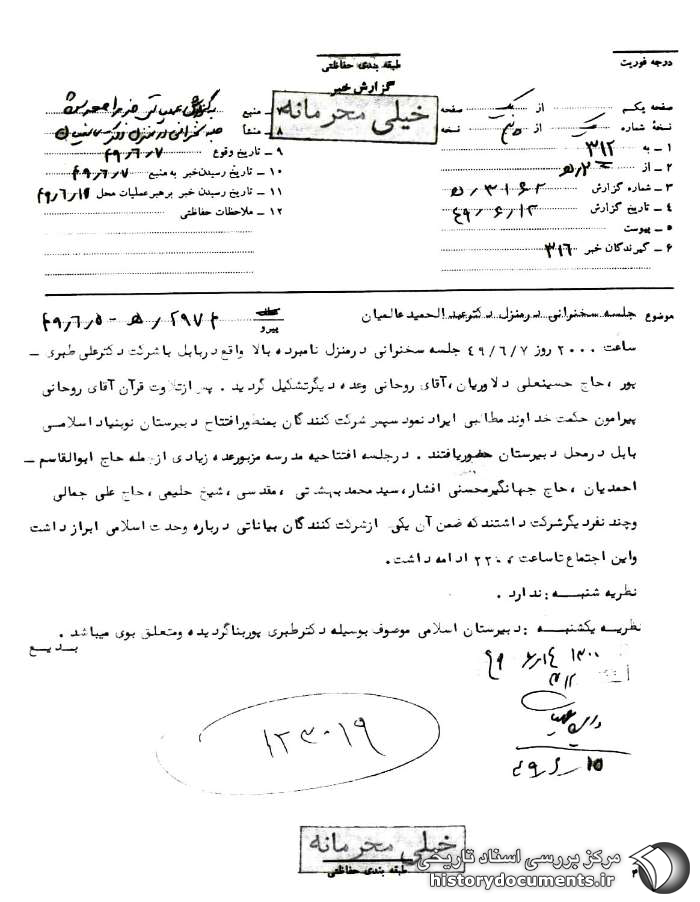 درجه فوریت
طبقه بندی حفاظتی
گزارش خبر
خیلی محرمانه
صفحه یکم از یک صفحه
نسخهٔ شماره یک از نسخه
۱ ـ به ۳۱۲
۲ ـ از ۲ ه
۳ ـ شماره گزارش
۴ ـ تاریخ گزارش ۴۹/۶/۱۲
۵ ـ پیوست
۶ ـ گیرندگان خبر ۳۱۶
۷ ـ منبع
۸ ـ منشأ
۹ ـ تاریخ وقوع ۴۹/۶/۷
۱۰ ـ تاریخ رسیدن خبر به منبع ۴۹/۶/۷
۱۱ ـ تاریخ رسیدن خبر برهبر عملیات محل
۱۲ ـ ملاحظات حفاظتی
موضوع جلسه سخنرانی در منزل دکتر عبدالحمید عالمیان
پیرو ۲۹۷۴/ه - ۴۹/۶/۵
ساعت ۲۰۰۰ روز ۴۹/۶/۷ جلسه سخنرانی در منزل نامبرده بالا واقع در بابل با شرکت دکتر علی طبری ـ
پور ، حاج حسینعلی دلاوریان ، آقای روحانی وعده دیگر تشکیل گردید . پس از تلاوت قرآن آقای روحانی
پیرامون حکمت خداوند مطالبی ایراد نمود سپس شرکت کنندگان بمنظور افتتاح دبیرستان نوبنیاد اسلامی
بابل در محل دبیرستان حضور یافتند . در جلسه افتتاحیه مدرسه مزبور عده زیادی از جمله حاج ابوالقاسم ـ
احمدیان ، حاج جهانگیر محسنی افشار ، سید محمد بهشتی ، مقدسی ، شیخ حلیمی ، حاج علی جمالی
وچند نفر دیگر شرکت داشتند که ضمن آن یکی از شرکت کنندگان بیاناتی درباره وحدت اسلامی ابراز داشت
واین اجتماع تا ساعت ۲۲۰۰ ادامه داشت .
نظریه شنبه : ندارد .
نظریه یکشنبه : دبیرستان اسلامی موصوف بوسیله دکتر طبری پور بنا گردیده ومتعلق بوی میباشد .
بدیع
۱۳۰۰ ۴۹/۶/۱۴
۳۱۲
۴۹/۶/۱۵
۱۲۳۰۱۹
خیلی محرمانه
طبقه بندی حفاظتی
مرکز بررسی اسناد تاریخی
historydocuments.ir